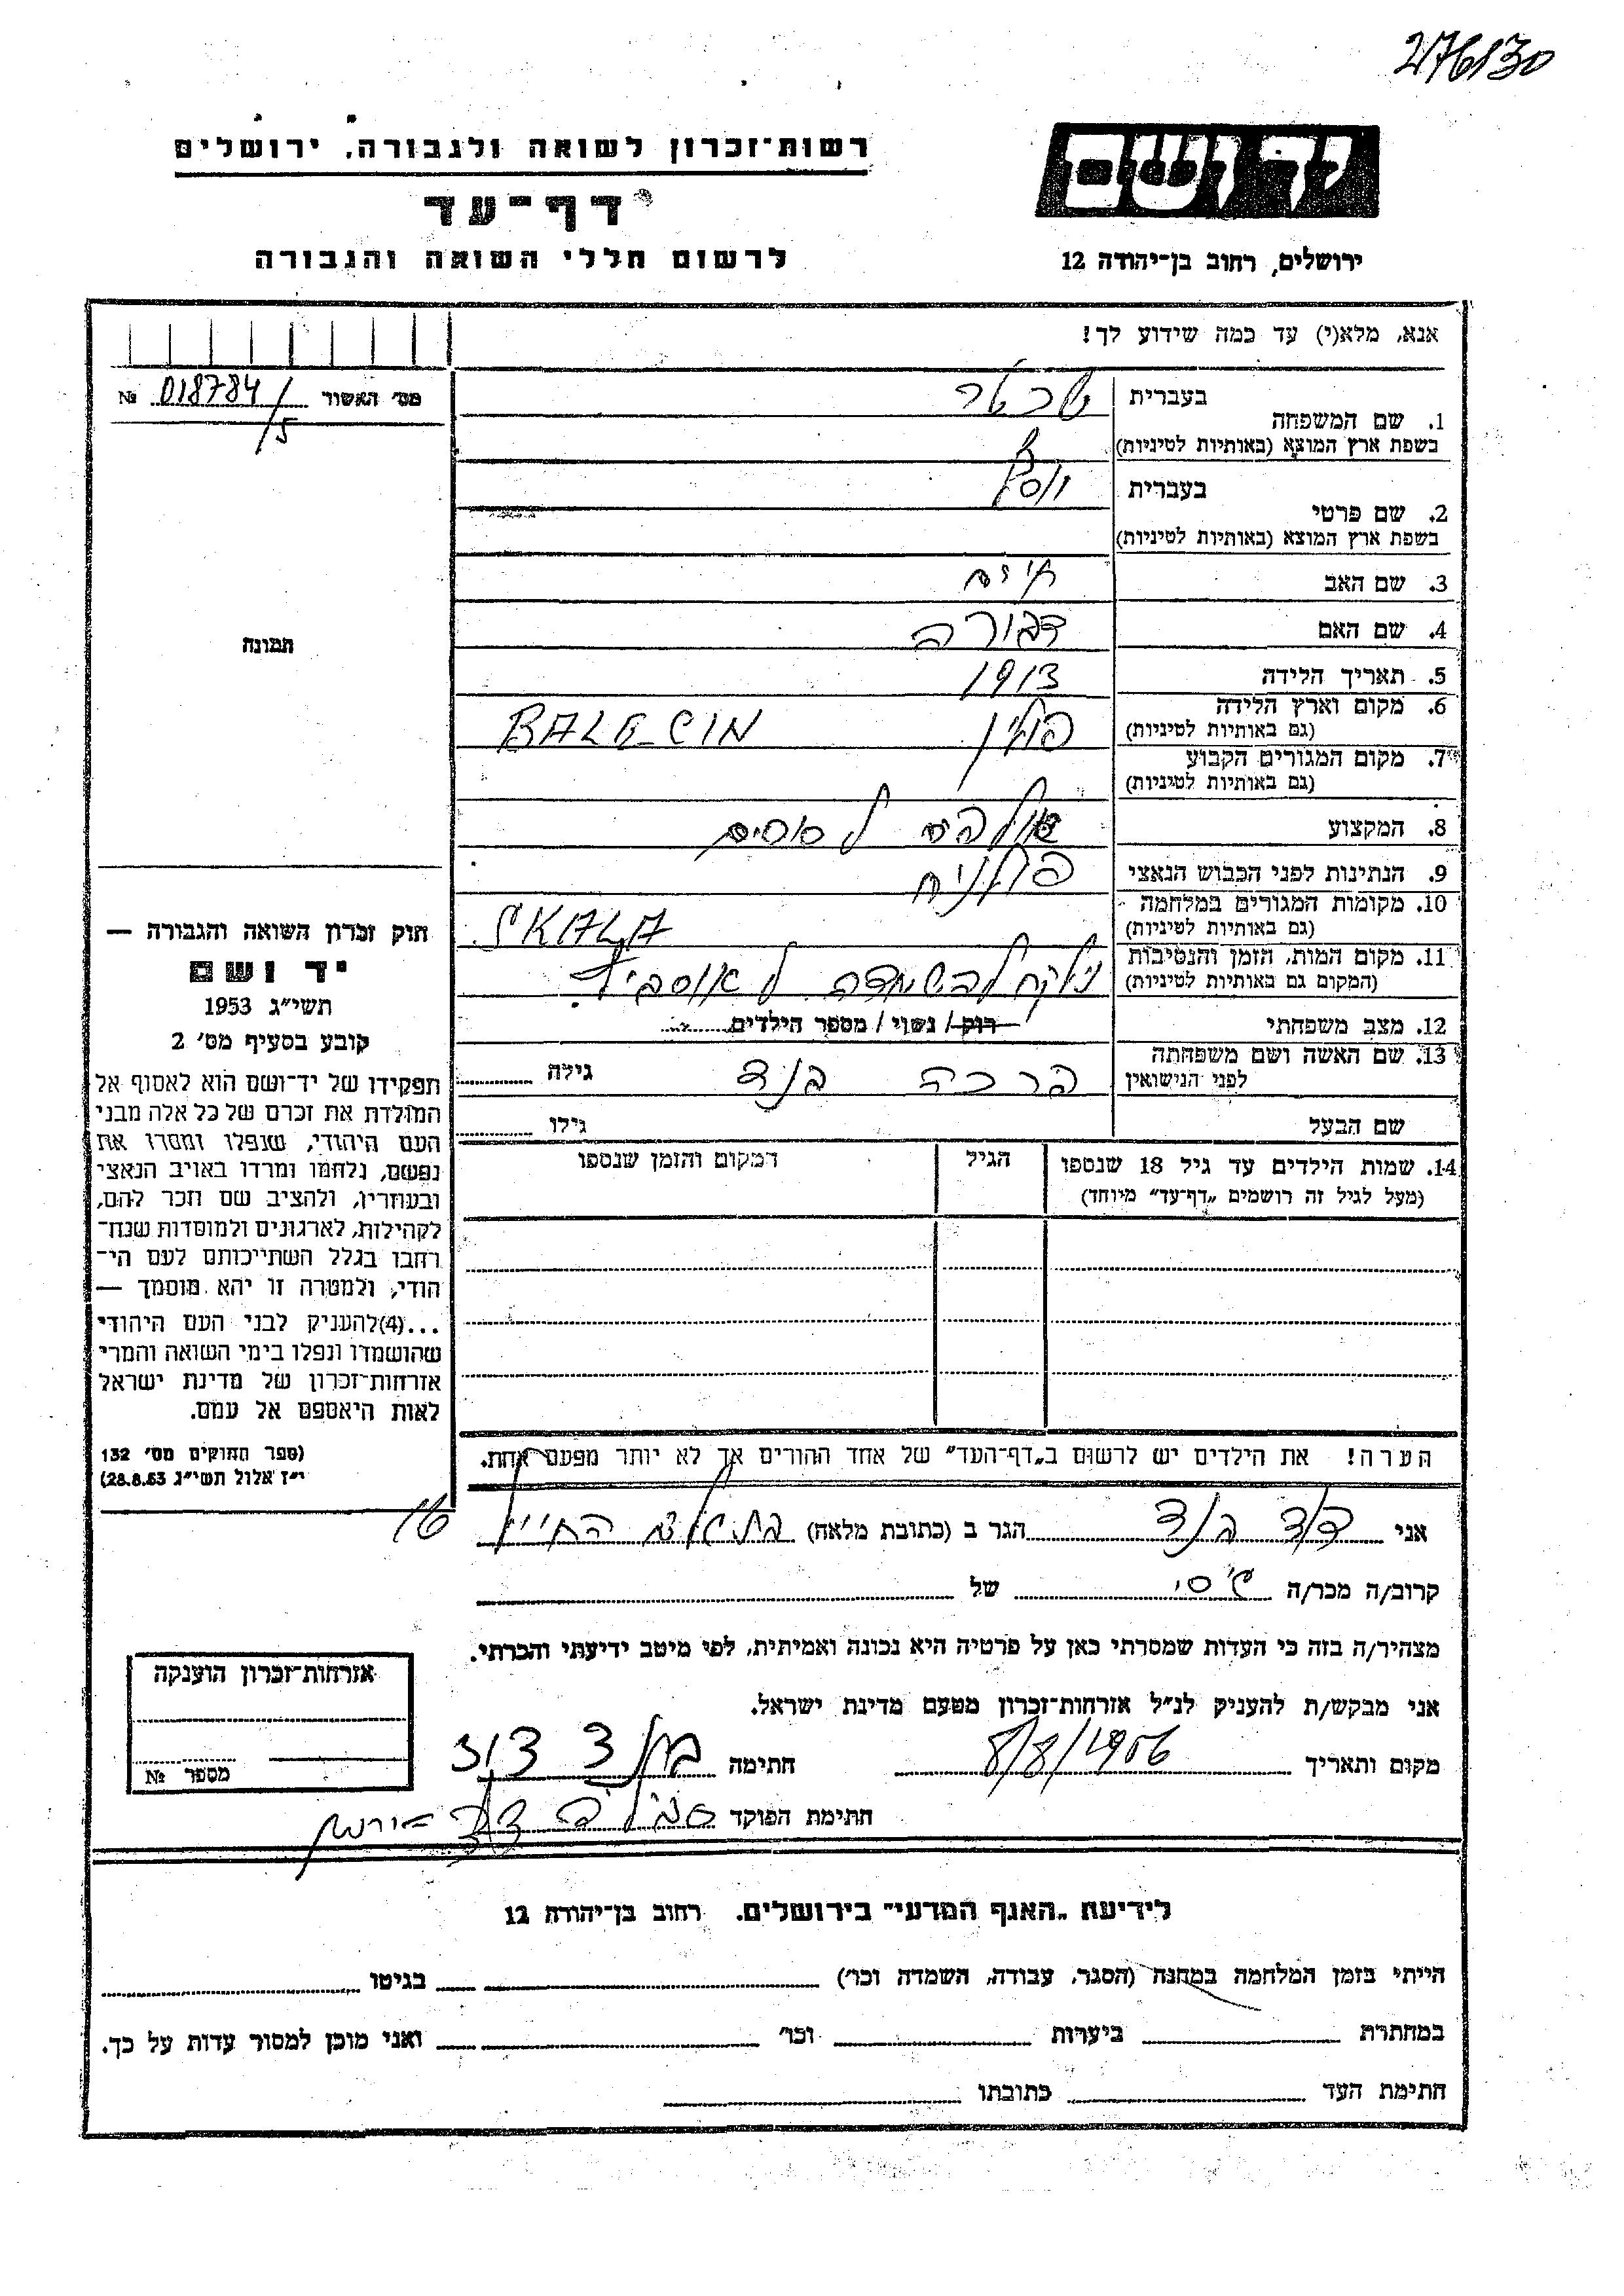 276130
רשות־זכרון לשואה ולגבורה, ירושלים
יד ושם
דף־עד
לרשום חללי השואה והגבורה
ירושלים, רחוב בן־יהודה 12
אנא, מלא(י) עד כמה שידוע לך!
מס׳ האשור 018784/5 №
1. שם המשפחה
בעברית
בשפת ארץ המוצא (באותיות לטיניות)
2. שם פרטי
בעברית
בשפת ארץ המוצא (באותיות לטיניות)
3. שם האב חיים
4. שם האם דבורה
5. תאריך הלידה 1913
6. מקום וארץ הלידה פולין
(גם באותיות לטיניות)
7. מקום המגורים הקבוע
(גם באותיות לטיניות)
8. המקצוע
9. הנתינות לפני הכבוש הנאצי פולנית
10. מקומות המגורים במלחמה SKALA
(גם באותיות לטיניות)
11. מקום המות, הזמן והנסיבות נלקח להשמדה
(המקום גם באותיות לטיניות)
12. מצב משפחתי רווק / נשוי / מספר הילדים
13. שם האשה ושם משפחתה ברכה בנד גילה
לפני הנישואין
שם הבעל גילו
תמונה
חוק זכרון השואה והגבורה —
יד ושם
תשי״ג 1953
קובע בסעיף מס׳ 2
תפקידו של יד־ושם הוא לאסוף אל
המולדת את זכרם של כל אלה מבני
העם היהודי, שנפלו ומסרו את
נפשם, נלחמו ומרדו באויב הנאצי
ובעוזריו, ולהציב שם וזכר להם,
לקהילות, לארגונים ולמוסדות שנח־
רבו בגלל השתייכותם לעם הי־
הודי, ולמטרה זו יהא מוסמך —
...(4)להעניק לבני העם היהודי
שהושמדו ונפלו בימי השואה והמרי
אזרחות־זכרון של מדינת ישראל
לאות היאספם אל עמם.
(ספר החוקים מס׳ 132
י״ז אלול תשי״ג 28.8.53)
14. שמות הילדים עד גיל 18 שנספו
(מעל לגיל זה רושמים „דף־עד״ מיוחד)
הגיל
המקום והזמן שנספו
הערה! את הילדים יש לרשום ב„דף־העד״ של אחד ההורים אך לא יותר מפעם אחת.
אני דוד בנד הגר ב (כתובת מלאה) 16
קרוב/ה מכר/ה גיסי של
מצהיר/ה בזה כי העדות שמסרתי כאן על פרטיה היא נכונה ואמיתית, לפי מיטב ידיעתי והכרתי.
אני מבקש/ת להעניק לנ״ל אזרחות־זכרון מטעם מדינת ישראל.
מקום ותאריך 8/8/1956 חתימה בנד דוד
חתימת הפוקד
אזרחות־זכרון הוענקה
מספר №
לידיעת „האגף המדעי״ בירושלים, רחוב בן־יהודה 12
הייתי בזמן המלחמה במחנה (הסגר, עבודה, השמדה וכו׳) בגיטו
במחתרת ביערות וכו׳ ואני מוכן למסור עדות על כך.
חתימת העד כתובתו